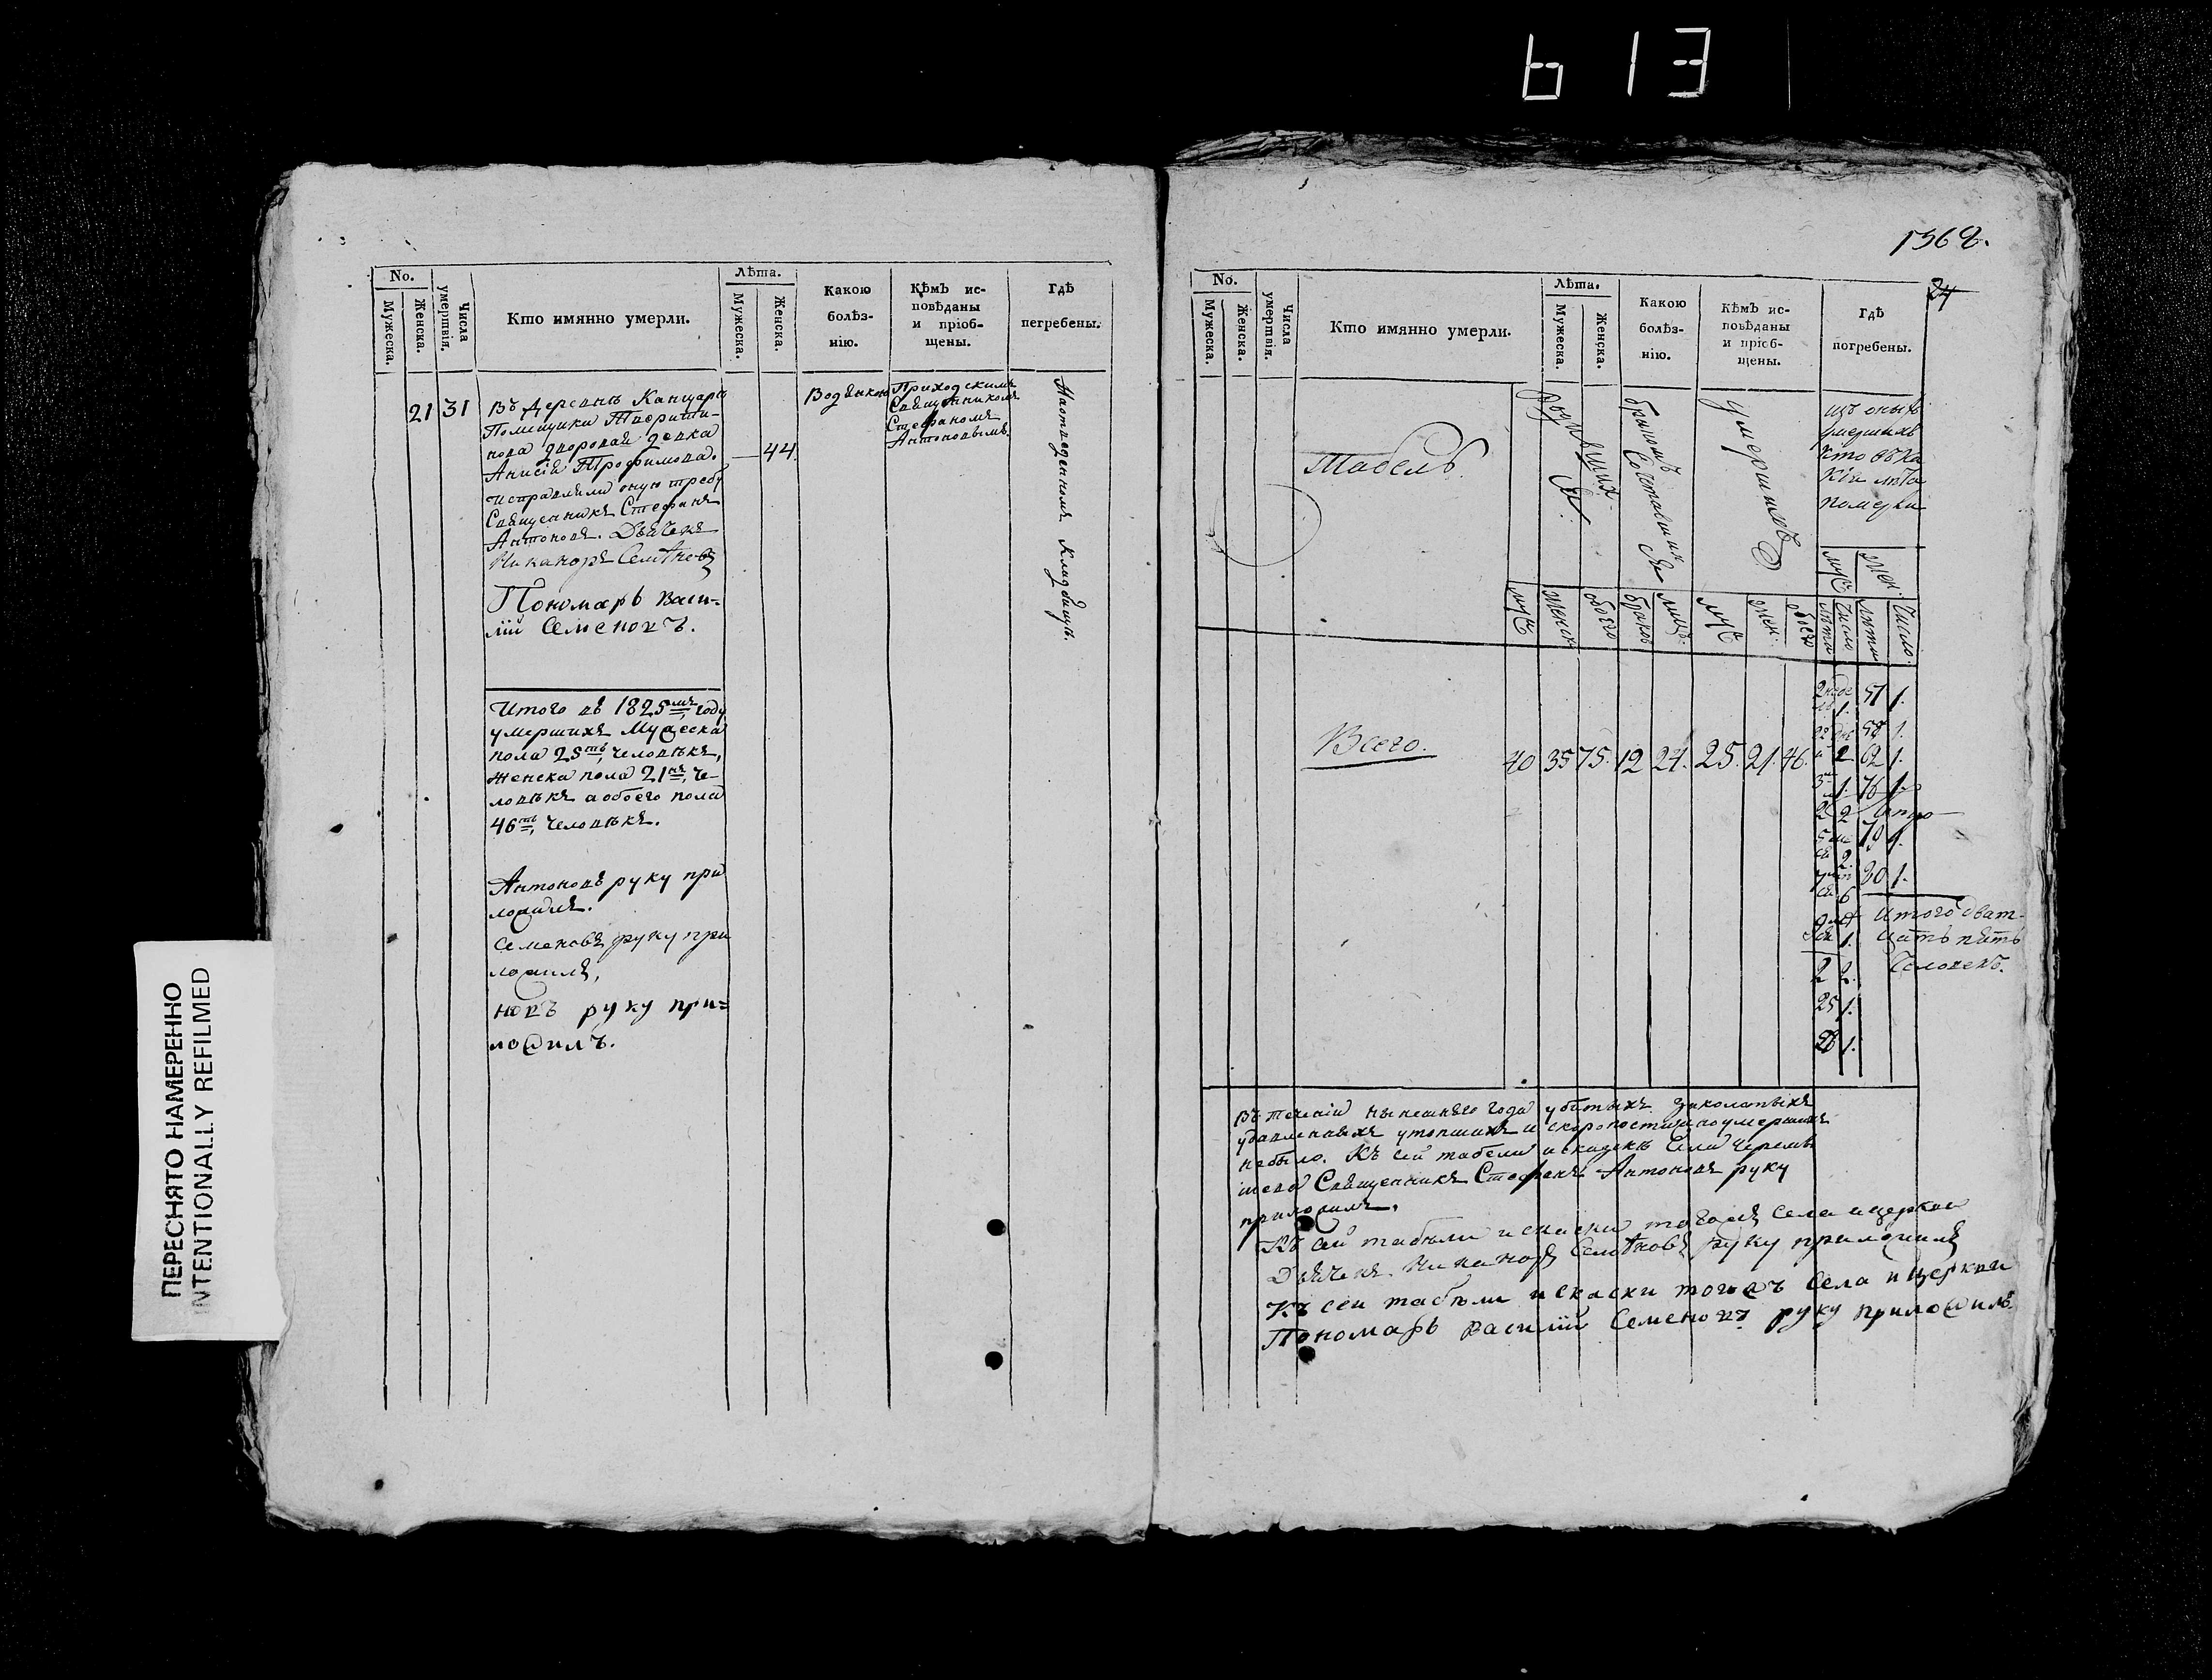 613
ПЕРЕСНЯТО НАМЕРЕННО
INTENTIONALLY REFILMED
No.
Мужеска.
Женска.
Числа умертвія.
Кто имянно умерли.
Лѣта.
Мужеска.
Женска.
Какою болѣз-
нію.
Кѣмъ ис-
повѣданы
и пріоб-
щены.
Гдѣ
пегребены.
21
31
Въ деревнѣ
Помещика
дворовая девка
Анисія Трофимова.
исправляли оную требу
Священникъ Стефанъ
Антоновъ. Дьячекъ
Никаноръ Семѣновъ
Пономарь Васи-
лій Семеновъ.
44
Водянкою
Приходскимъ
Священникомъ
Стефаномъ
Антоновымъ.
На отведенномъ кладбищѣ.
Итого въ 1825мъ году
умершихъ Мужеска
пола 25ть человѣкъ,
женска пола 21нъ, че-
ловѣкъ а обоего пола
46ть, человѣкъ.
Антоновъ руку при
ложилъ.
Семеновъ руку при
ложилъ,
новъ руку при=
ложилъ.
1368.
24
No.
Мужеска.
Женска.
Числа умертвія.
Кто имянно умерли.
Лѣта.
Мужеска.
Женска.
Какою
болѣз-
нію.
Кѣмъ ис-
повѣданы
и пріоб-
щены.
Гдѣ
погребены.
Табель
Родившихся
бракомъ Сочетавшихся
умершихъ
изъ оныхъ
умершихъ
кто въ ка
кія лѣта
померли
муж
жен
муж
женск
обоего
браковъ
лицъ
муж
жен.
обоего
лѣта
число
лѣта
Число.
Всего.
40 35 75. 12 24. 25. 21. 46.
57 1.
58 1.
62 1.
76 1.
70 1.
80 1.
2 2.
25 1.
28 1.
Итого дват-
цать пять
Человекъ.
Въ теченіи нынешняго года убитыхъ заколотыхъ
удавленныхъ утопшихъ и скоропостижно умершихъ
небыло. Къ сей табели и скаскѣ Села Черемы
шева Священникъ Стефанъ Антоновъ руку
приложилъ.
Къ сей табѣли и скаски тогожъ села и церкви
Дьячекъ Никаноръ Семѣновъ руку приложилъ
Къ сеи табѣли и скаски тогожъ Села и церкви
Пономарь Василій Семеновъ руку приложилъ.